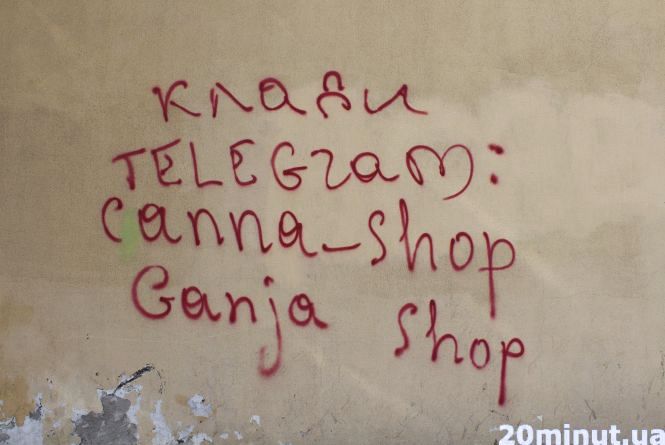 клади
TELEGram:
Canna_shop
Ganja shop
20minut.ua